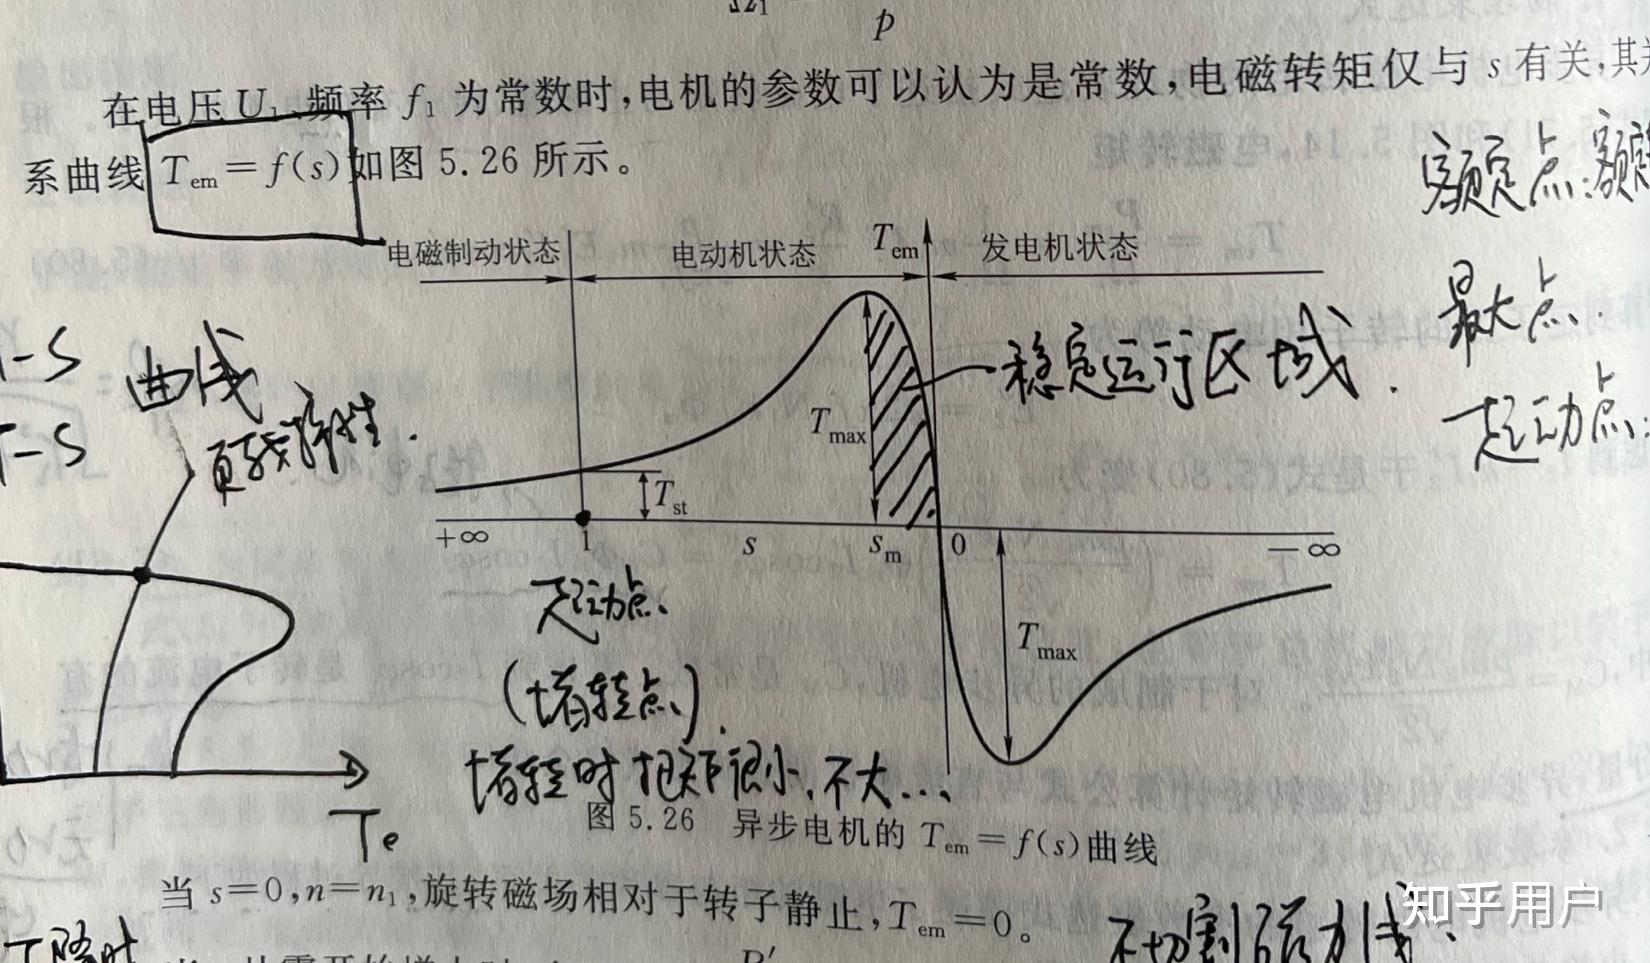 p
在电压U₁、频率 f₁ 为常数时,电机的参数可以认为是常数,电磁转矩仅与 s 有关,其
系曲线 Tem＝f(s)如图 5.26 所示。
额定点:额定
电磁制动状态 电动机状态 Tem 发电机状态
最大点.
T-S 曲线 稳定运行区域.
起动点:
T-S
Tmax
Tst
+∞ 1 s sm 0 －∞
起动点、
Tmax
(堵转点).
堵转时 转矩很小,不大...
Te
图 5.26 异步电机的 Tem＝f(s)曲线
当 s＝0,n＝n₁,旋转磁场相对于转子静止,Tem＝0。
不切割磁力线.
知乎用户